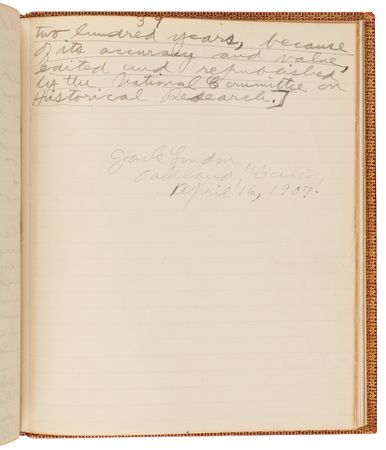 39
two hundred years, because
of its accuracy and value,
edited and republished
by the National Committee on
Historical Research.]
Jack London,
Oakland, Calif.,
April 16, 1907.